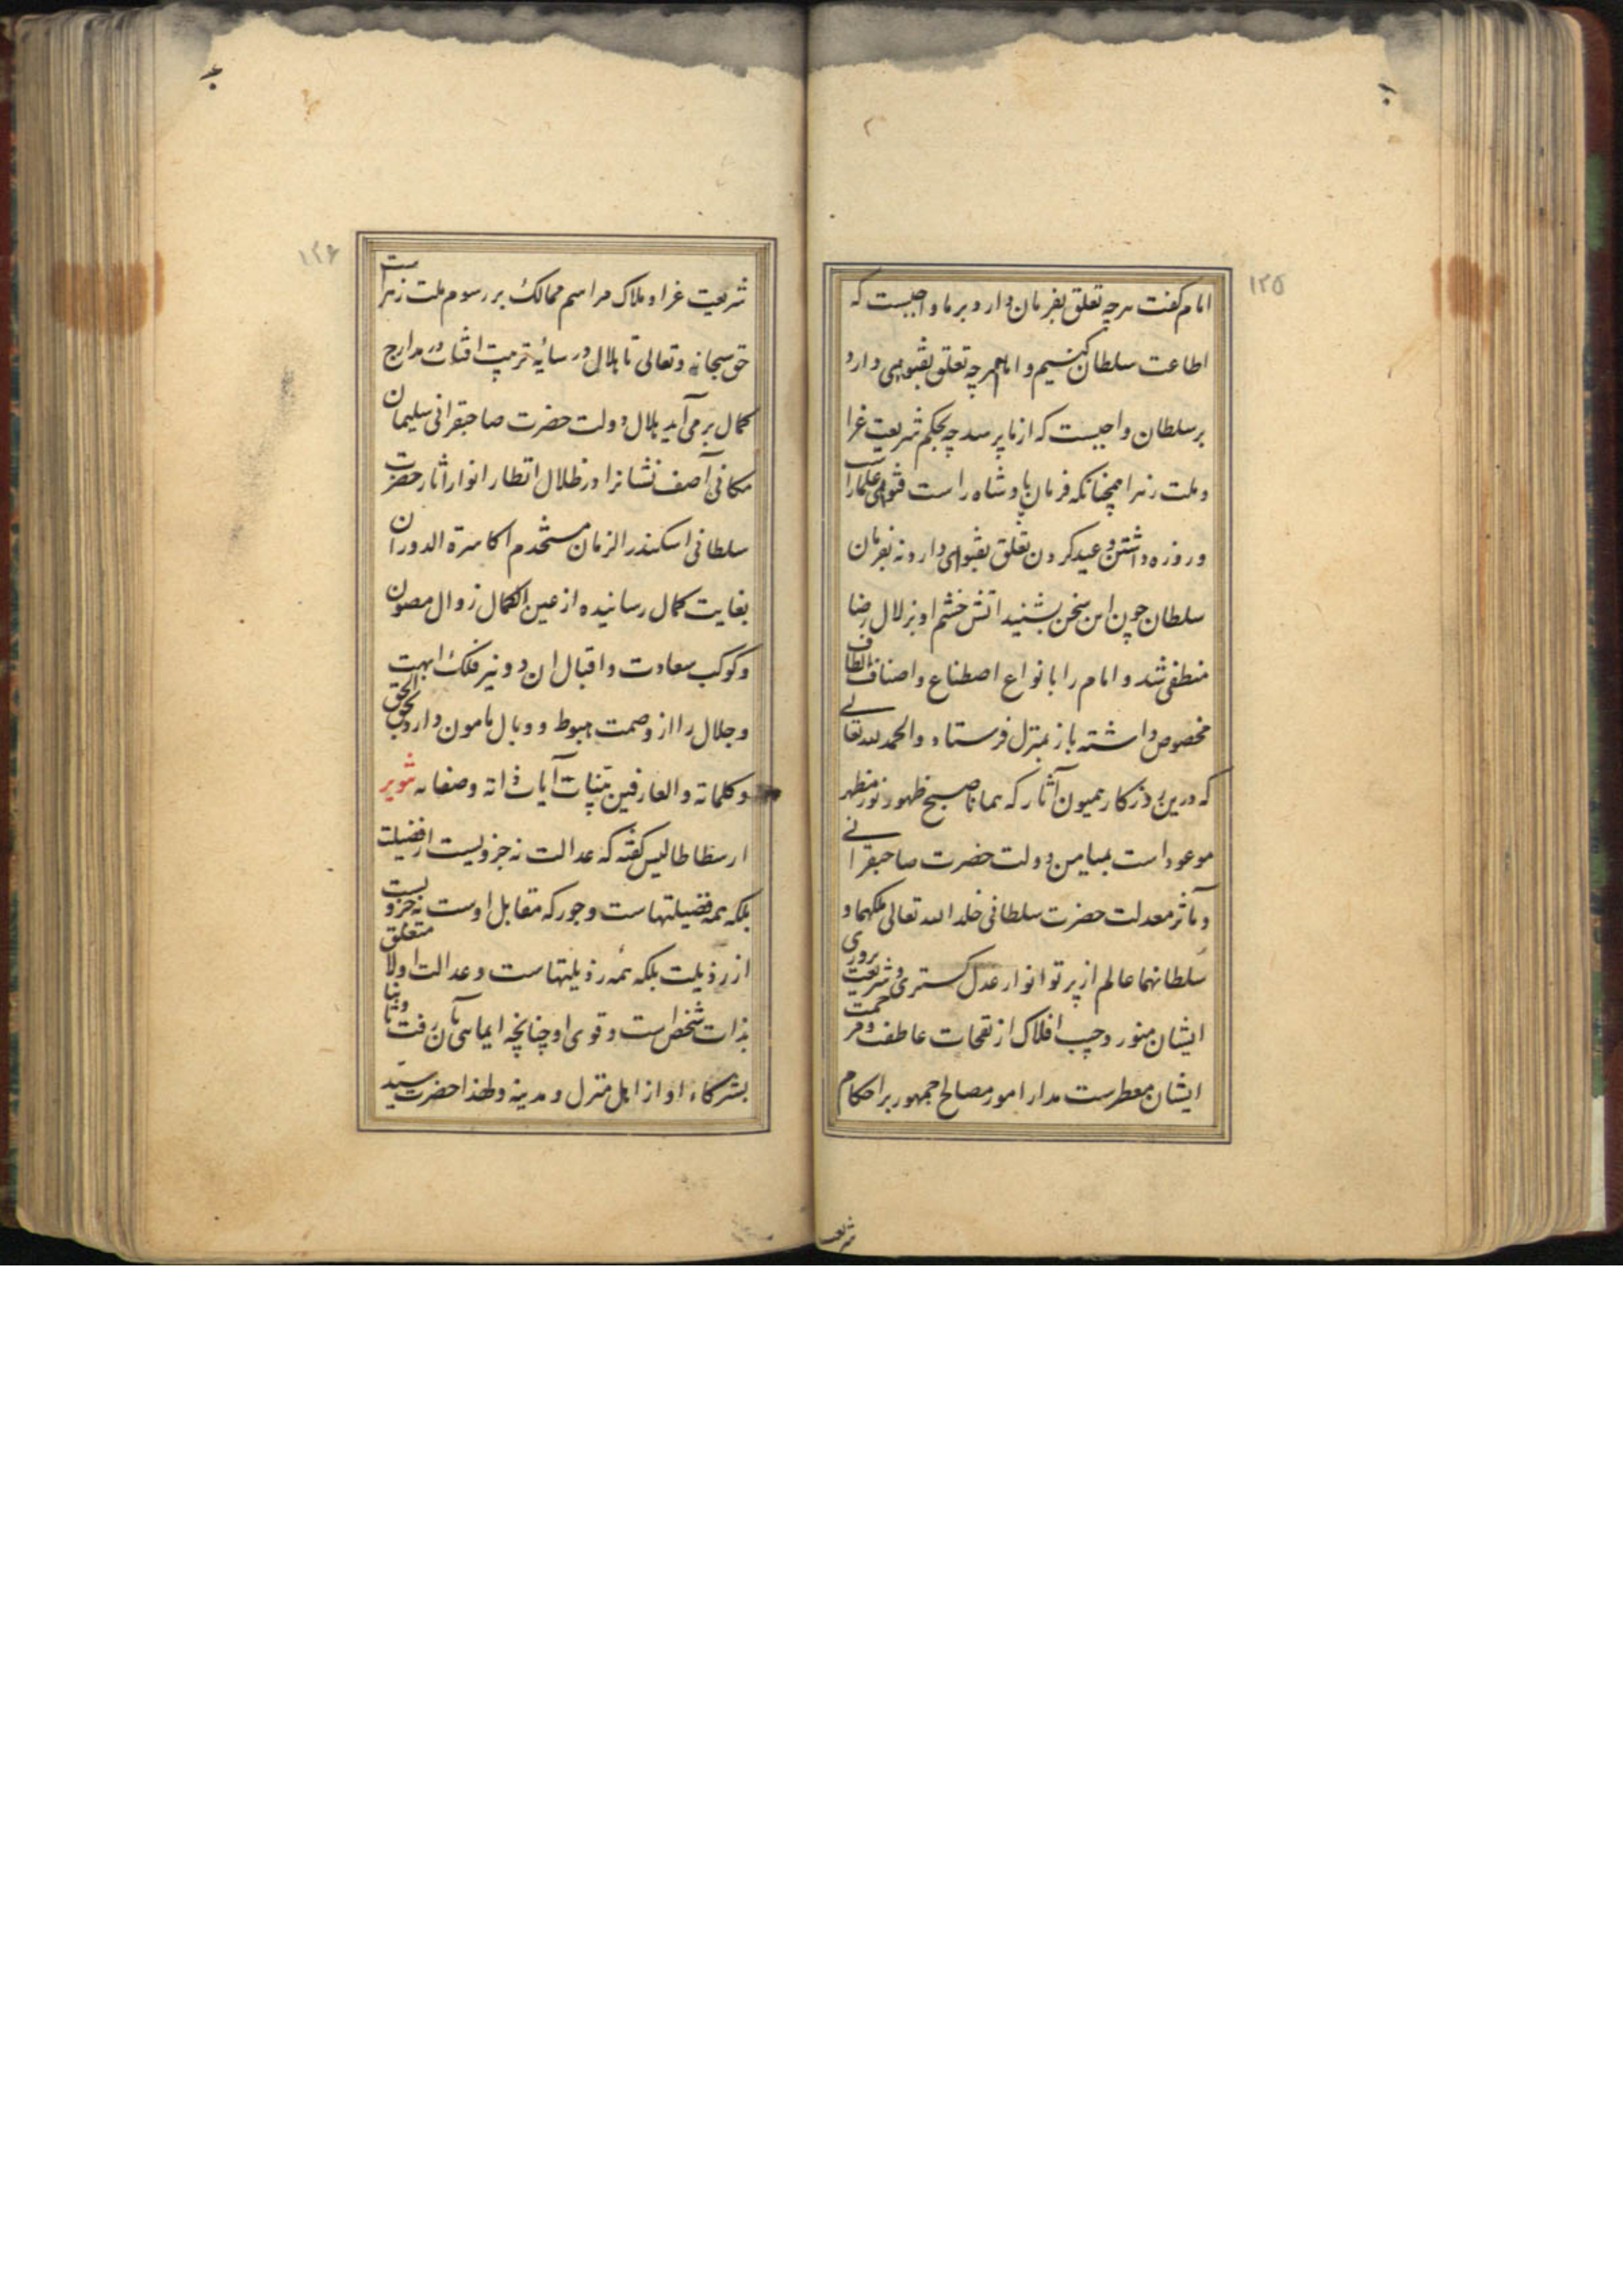 ۱۲۵
امام گفت هرچه تعلق بفرمان دارد بر ما واجبست که
اطاعت سلطان کنیم و اما هرچه تعلق بفتوی دارد
بر سلطان واجبست که از ما پرسد چه بحکم شریعت غرا
و ملت زهرا همچنانکه فرمان پادشاه راست فتوی علما راست
و روزه داشتن و عید کردن تعلق بفتوی دارد نه بفرمان
سلطان چون این سخن بشنید اتش خشم او بزلال رضا
منطفی شد و امام را بانواع اصطناع و اصناف الطاف
مخصوص داشته باز بمنزل فرستاد و الحمد لله تعالی
که درین روزکار همیون آثار که همانا صبح ظهور نور مظهر
موعود است بمیامن دولت حضرت صاحبقرانی
و مآثر معدلت حضرت سلطانی خلد الله تعالی ملکهما و
سلطانهما عالم از پرتو انوار عدل کستری و شریعت پروری
ایشان منور و جیب افلاک از نفحات عاطفت و مرحمت
ایشان معطرست مدار امور مصالح جمهور بر احکام
شریعت
۱۲۶
شریعت غرا و ملاک مراسم ممالک بر رسوم ملت زهراست
حق سبحانه و تعالی تا هلال در سایه تربیت افتاب در مدارج
کمال بر می آید هلال دولت حضرت صاحبقرانی سلیمان
مکانی آصف نشانرا در ظلال انظار انوار اثار حضرت
سلطانی اسکندر الزمان مستخدم اکاسرة الدوران
بغایت کمال رسانیده از عین الکمال زوال مصون
و کوکب سعادت و اقبال ان دو نیر فلک ابهت
و جلال را از وصمت هبوط و وبال مامون دارد بحق الحق
و کلماته و العارفین بینات آیات ذاته و صفاته تنویر
ارسطاطالیس کفته که عدالت نه جزویست از فضیلت
بلکه همه فضیلتهاست و جور که مقابل اوست نه جزویست
از رذیلت بلکه همه رذیلتهاست و عدالت اولا متعلق
بذات شخص است و قوی او چنانچه ایمائی بآن رفت و ثانیا
بشرکاء او از اهل منزل و مدینه و لهذا حضرت سید